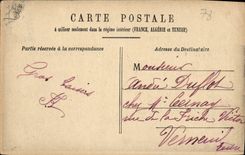 CARTE POSTALE
à utiliser seulement dans le régime intérieur (FRANCE, ALGÉRIE et TUNISIE)
Partie réservée à la correspondance
Adresse du Destinataire
Monsieur
André
chez Mr
Gros baisers
rue de la
Verneuil
Eure